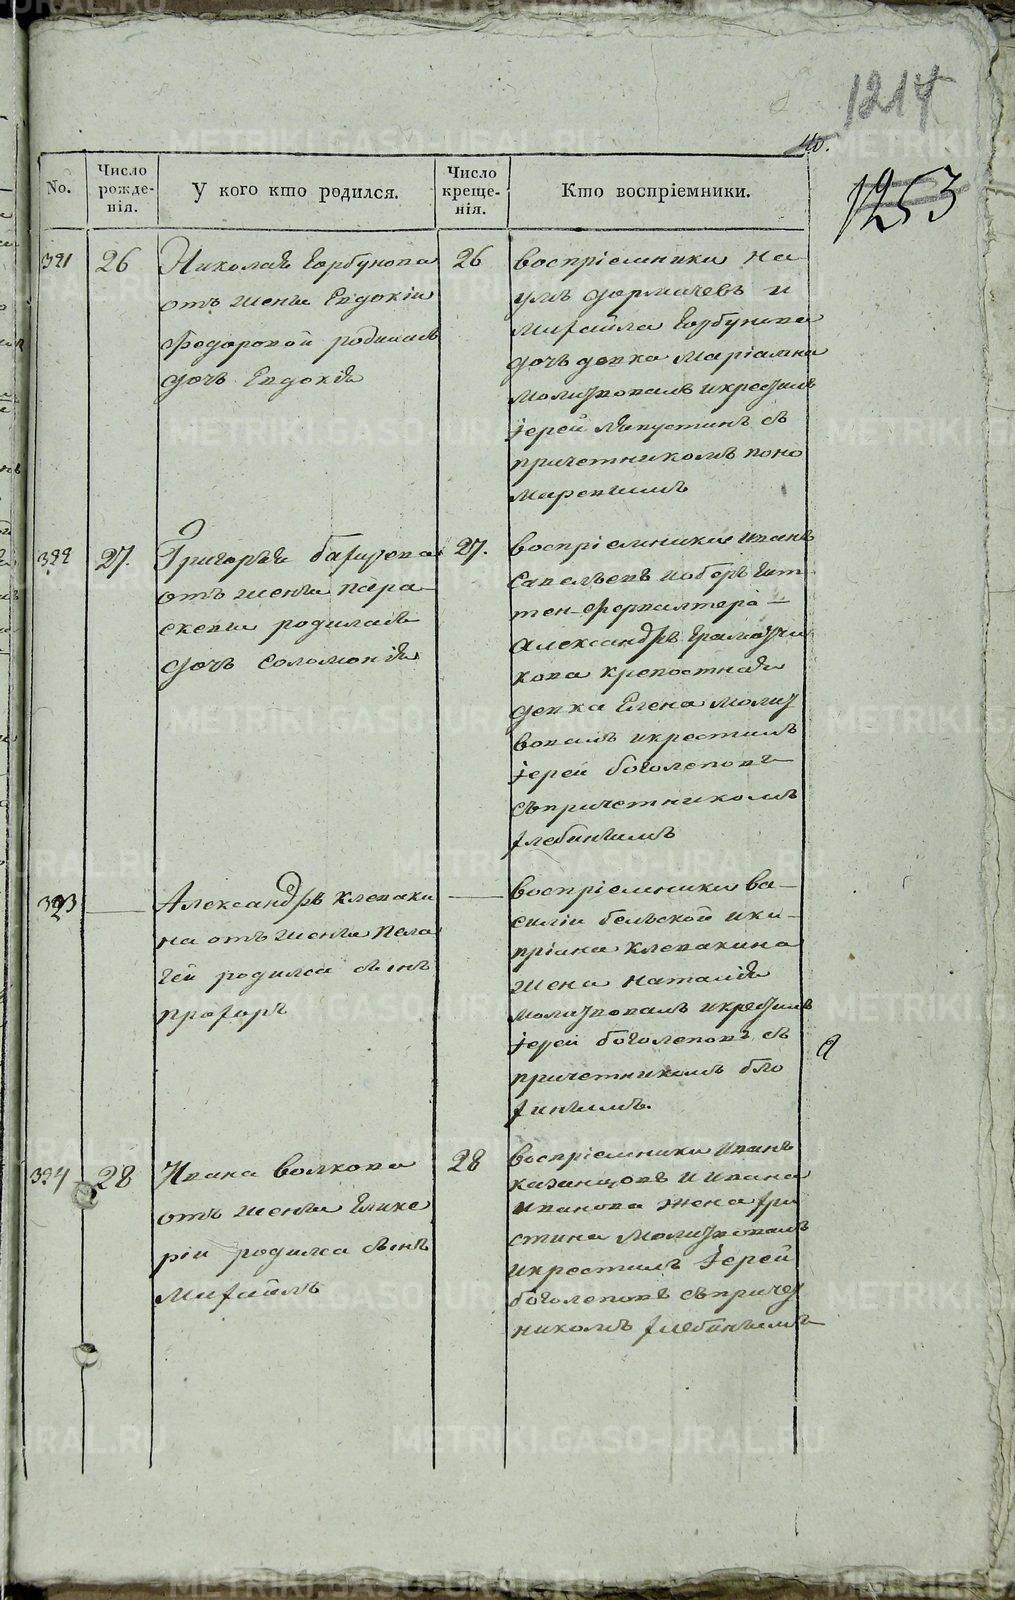 1214
1253
No.
Число рожде-
нія.
У кого кто родился.
Число креще-
нія.
Кто воспріемники.
321
26
Николая Горбунова
отъ жены Евдокіи
Федоровой родилась
дочь Евдокія
26
воспріемники На
умъ Дормачевъ и
Михайла Горбунова
дочь девка Маріамна
молитвовалъ и крестилъ
іерей Ляпустинъ съ
причетникомъ поно
маревымъ
322
27.
Григорья
отъ жены Пара
скевы родилась
дочь Соломонія
27.
воспріемники Иванъ
Савельевъ и оберъ гит
тен-фервалтера
Александръ
кова крепостная
девка Елена молит
вовалъ и крестилъ
іерей Боголеповъ
съ причетникомъ
Хлебинымъ
323
Александръ Клепаки
на отъ жены Пела
геи родился сынъ
Прохоръ
воспріемники Ва-
силіи Бельской и Ки-
пріана Клепакина
жена Наталія
молитвовалъ и крестилъ
іерей Боголеповъ съ
причетникомъ
324
28
Ивана Волкова
отъ жены Глике
ріи родился сынъ
Михаилъ
28
воспріемники Иванъ
Казанцовъ и Ивана
Иванова жена Хри
стина молитвовалъ
и крестилъ Іерей
Боголеповъ съ причет
никомъ Хлебинымъ